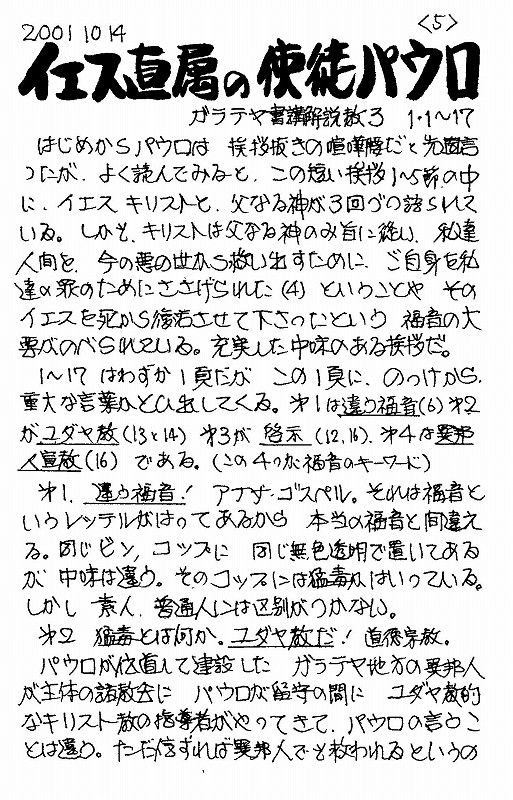 2001 10 14 〈5〉
イエス直属の使徒パウロ
ガラテヤ書講解説教3 1・1〜17
はじめからパウロは 挨拶抜きの喧嘩腰だと先週言
ったが、よく読んでみると、この短い挨拶1〜5節の中
に、イエスキリストと、父なる神が3回づつ語られて
いる。しかも、キリストは父なる神のみ旨に従い、私達
人間を、今の悪の世から救い出すために、ご自身を私
達の罪のためにささげられた(4)ということや その
イエスを死から復活させて下さったという 福音の大
要がのべられている。充実した中味のある挨拶だ。
1〜17 はわずか1頁だが この1頁に、のっけから、
重大な言葉がとび出してくる。第1は違う福音(6)第2
がユダヤ教(13と14) 第3が 啓示 (12,16)、第4は異邦
人宣教(16) である。(この4つが福音のキーワード)
第1、違う福音! アナザ・ゴスペル。それは福音と
いうレッテルがはってあるから 本当の福音と間違え
る。同じビン、コップに 同じ無色透明で置いてある
が 中味は違う。そのコップには猛毒がはいっている。
しかし 素人、普通人には区別がつかない。
第2 猛毒とは何か。ユダヤ教だ! 道徳宗教。
パウロが伝道して建設した ガラテヤ地方の異邦人
が主体の諸教会に パウロが留守の間に ユダヤ教的
なキリスト教の指導者がやってきて、パウロの言うこ
とは違う。ただ信ずれば異邦人でも救われるというの